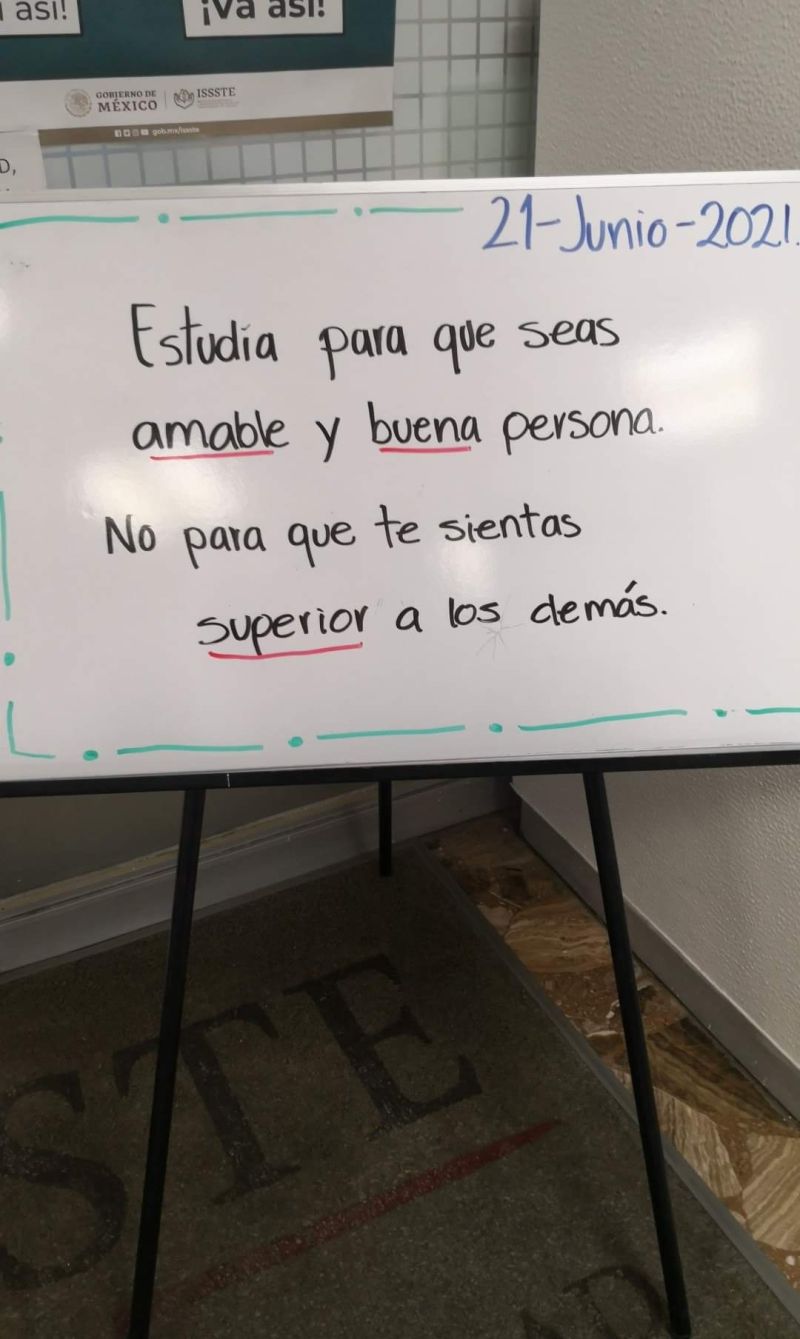 así!
¡Va así!
GOBIERNO DE
MÉXICO
ISSSTE
gob.mx/issste
D,
21-Junio-2021.
Estudia para que seas
amable y buena persona.
No para que te sientas
superior a los demás.
STE
AD